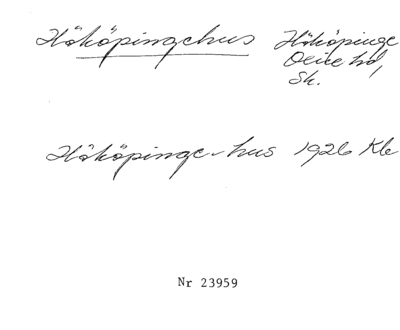 Hököpingehus Hököpinge
Oxie hd,
Sk.
Hököpinge-hus 1926 Kle
Nr 23959